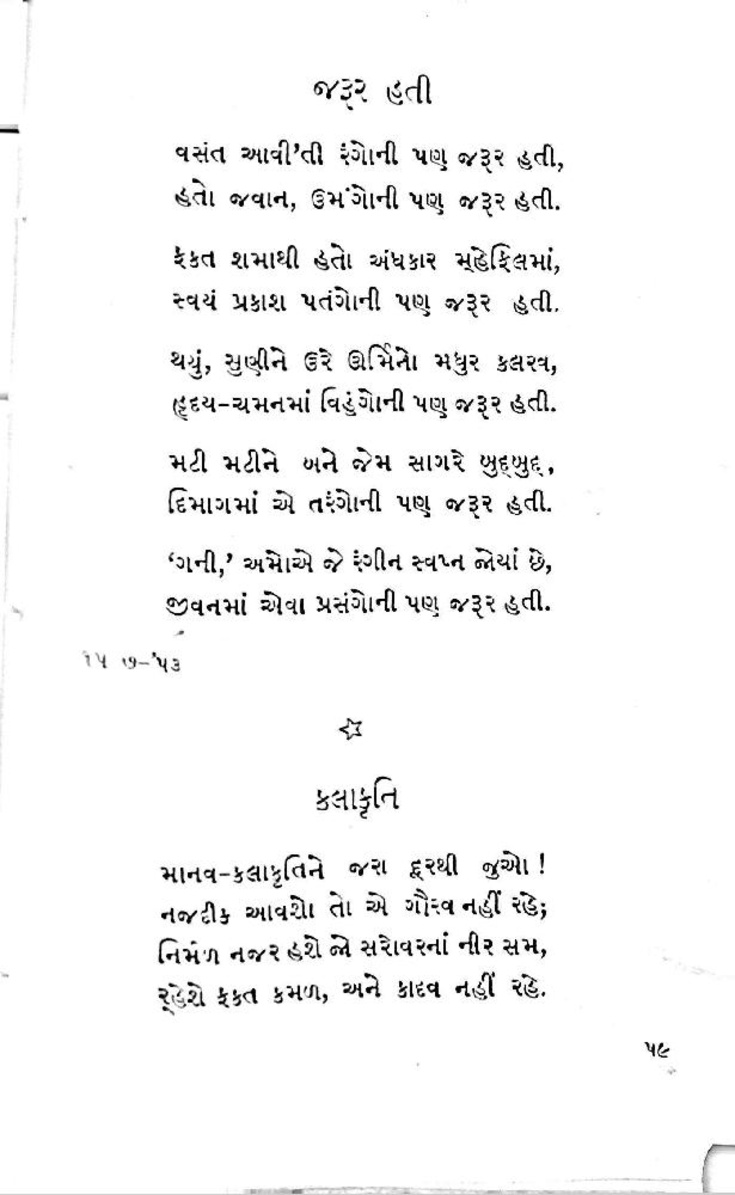 જરૂર હતી
વસંત આવી'તી રંગોની પણ જરૂર હતી,
હતો જવાન, ઉમંગોની પણ જરૂર હતી.
ફકત શમાથી હતો અંધકાર મ્હેફિલમાં,
સ્વયં પ્રકાશ પતંગોની પણ જરૂર હતી.
થયું, સુણીને ઉરે ઊર્મિનો મધુર કલરવ,
હૃદય-ચમનમાં વિહંગોની પણ જરૂર હતી.
મટી મટીને બને જેમ સાગરે બુદ્દબુદ્દ,
દિમાગમાં એ તરંગોની પણ જરૂર હતી.
‘ગની,’ અમોએ જે રંગીન સ્વપ્ન જોયાં છે,
જીવનમાં એવા પ્રસંગોની પણ જરૂર હતી.
૧૫ ૭-'૫૩
કલાકૃતિ
માનવ-કલાકૃતિને જરા દૂરથી જુઓ !
નજદીક આવશો તો એ ગૌરવ નહીં રહે;
નિર્મળ નજર હશે જો સરોવરનાં નીર સમ,
ર્‌હેશે ફકત કમળ, અને કાદવ નહીં રહે.
૫૯